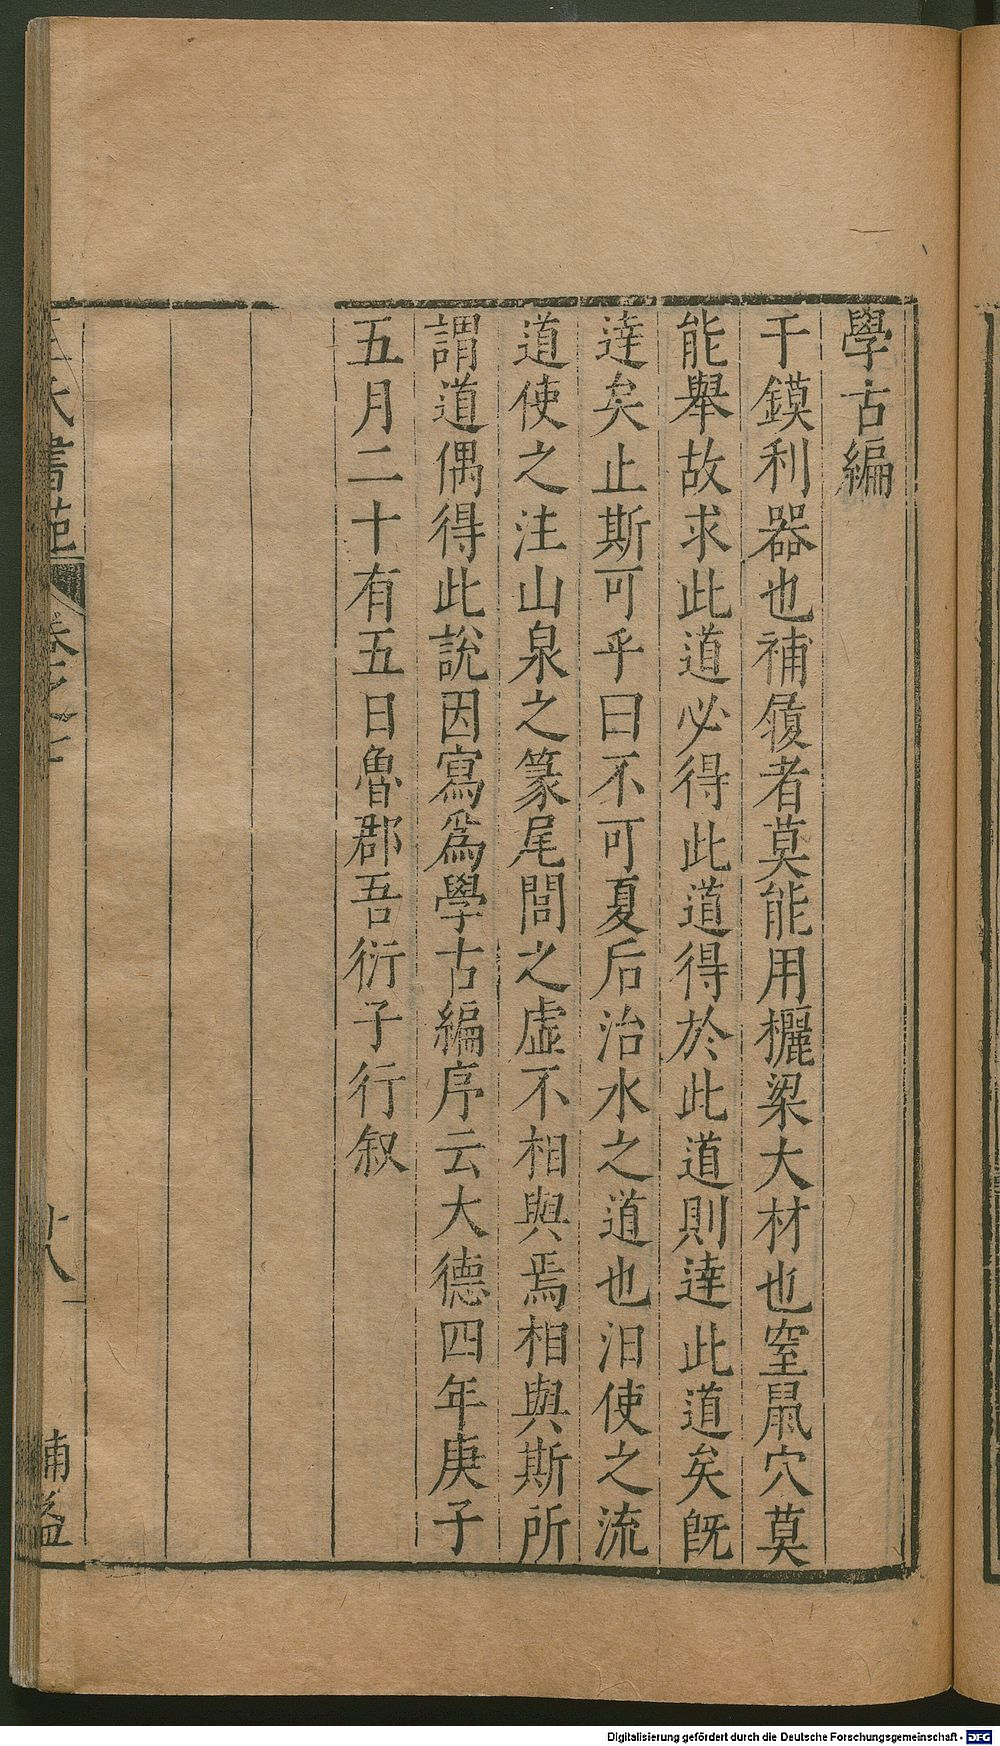 學古編
干鏌利器也補履者莫能用欐梁大材也窒鼠穴莫
能舉故求此道必得此道得於此道則達此道矣旣
達矣止斯可乎曰不可夏后治水之道也汨使之流
道使之注山泉之篆尾閭之虛不相與焉相與斯所
謂道偶得此說因寫爲學古編序云大德四年庚子
五月二十有五日魯郡吾衍子行叙
氏書苑
卷之七
補益
Digitalisierung gefördert durch die Deutsche Forschungsgemeinschaft - DFG